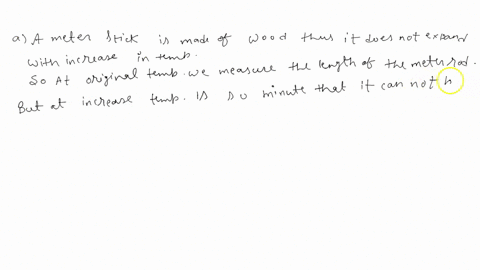 a) A meter stick is made of wood thus it does not expand
with increase in temp.
So At original temp. we measure the length of the meter rod.
But at increase temp. is so minute that it can not h